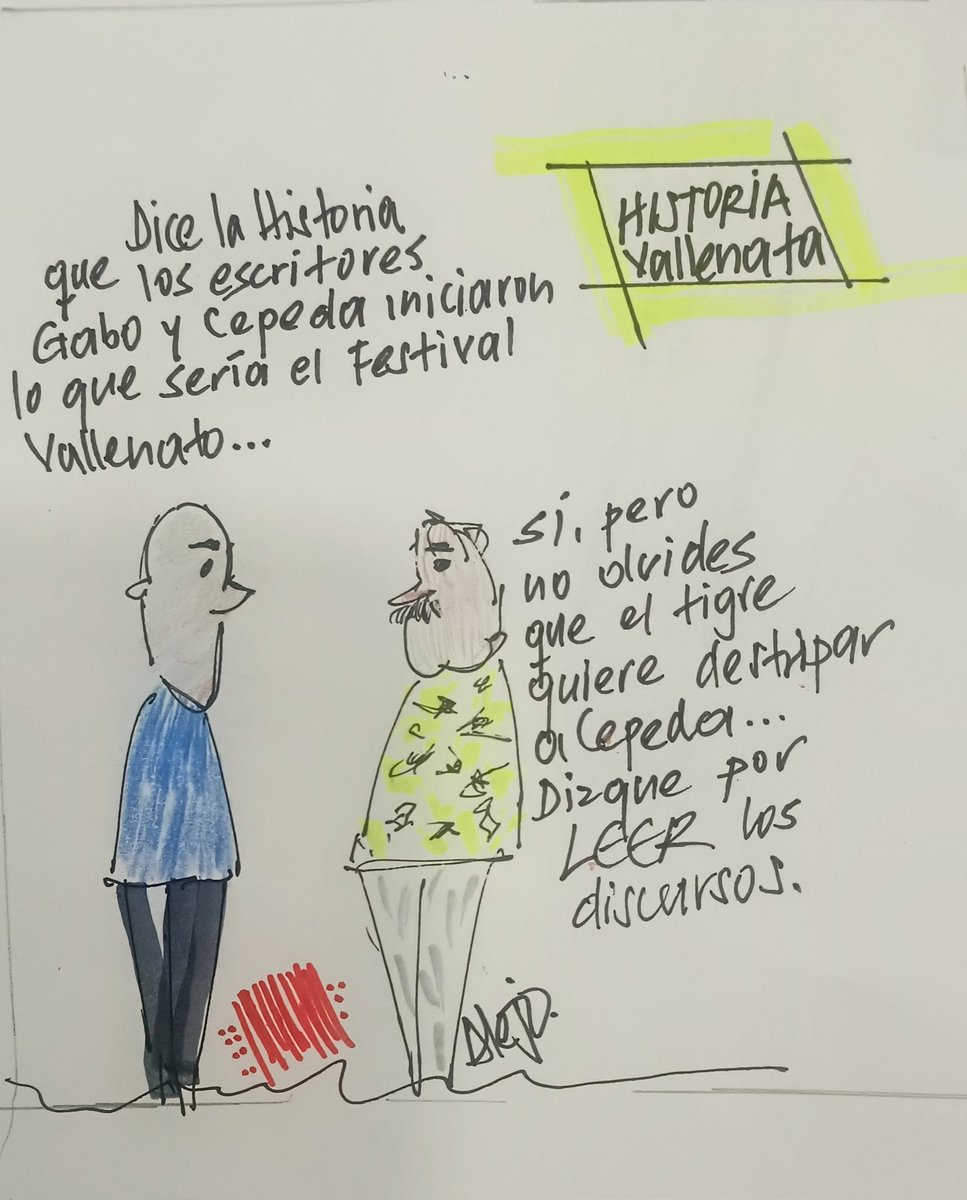 HISTORIA
Vallenata
Dice la Historia
que los escritores
Gabo y Cepeda iniciaron
lo que sería el Festival
Vallenato...
sí, pero
no olvides
que el tigre
quiere destripar
a Cepeda...
Dizque por
LEER los
discursos.
Alejo.